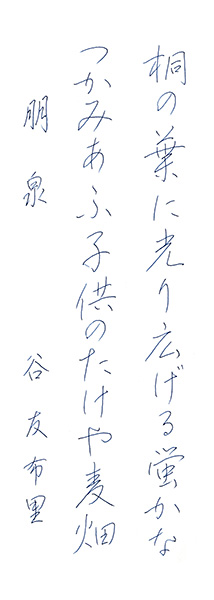 桐の葉に光り広げる蛍かな
つかみあふ子供のたけや麦畑
朋泉　谷友布里